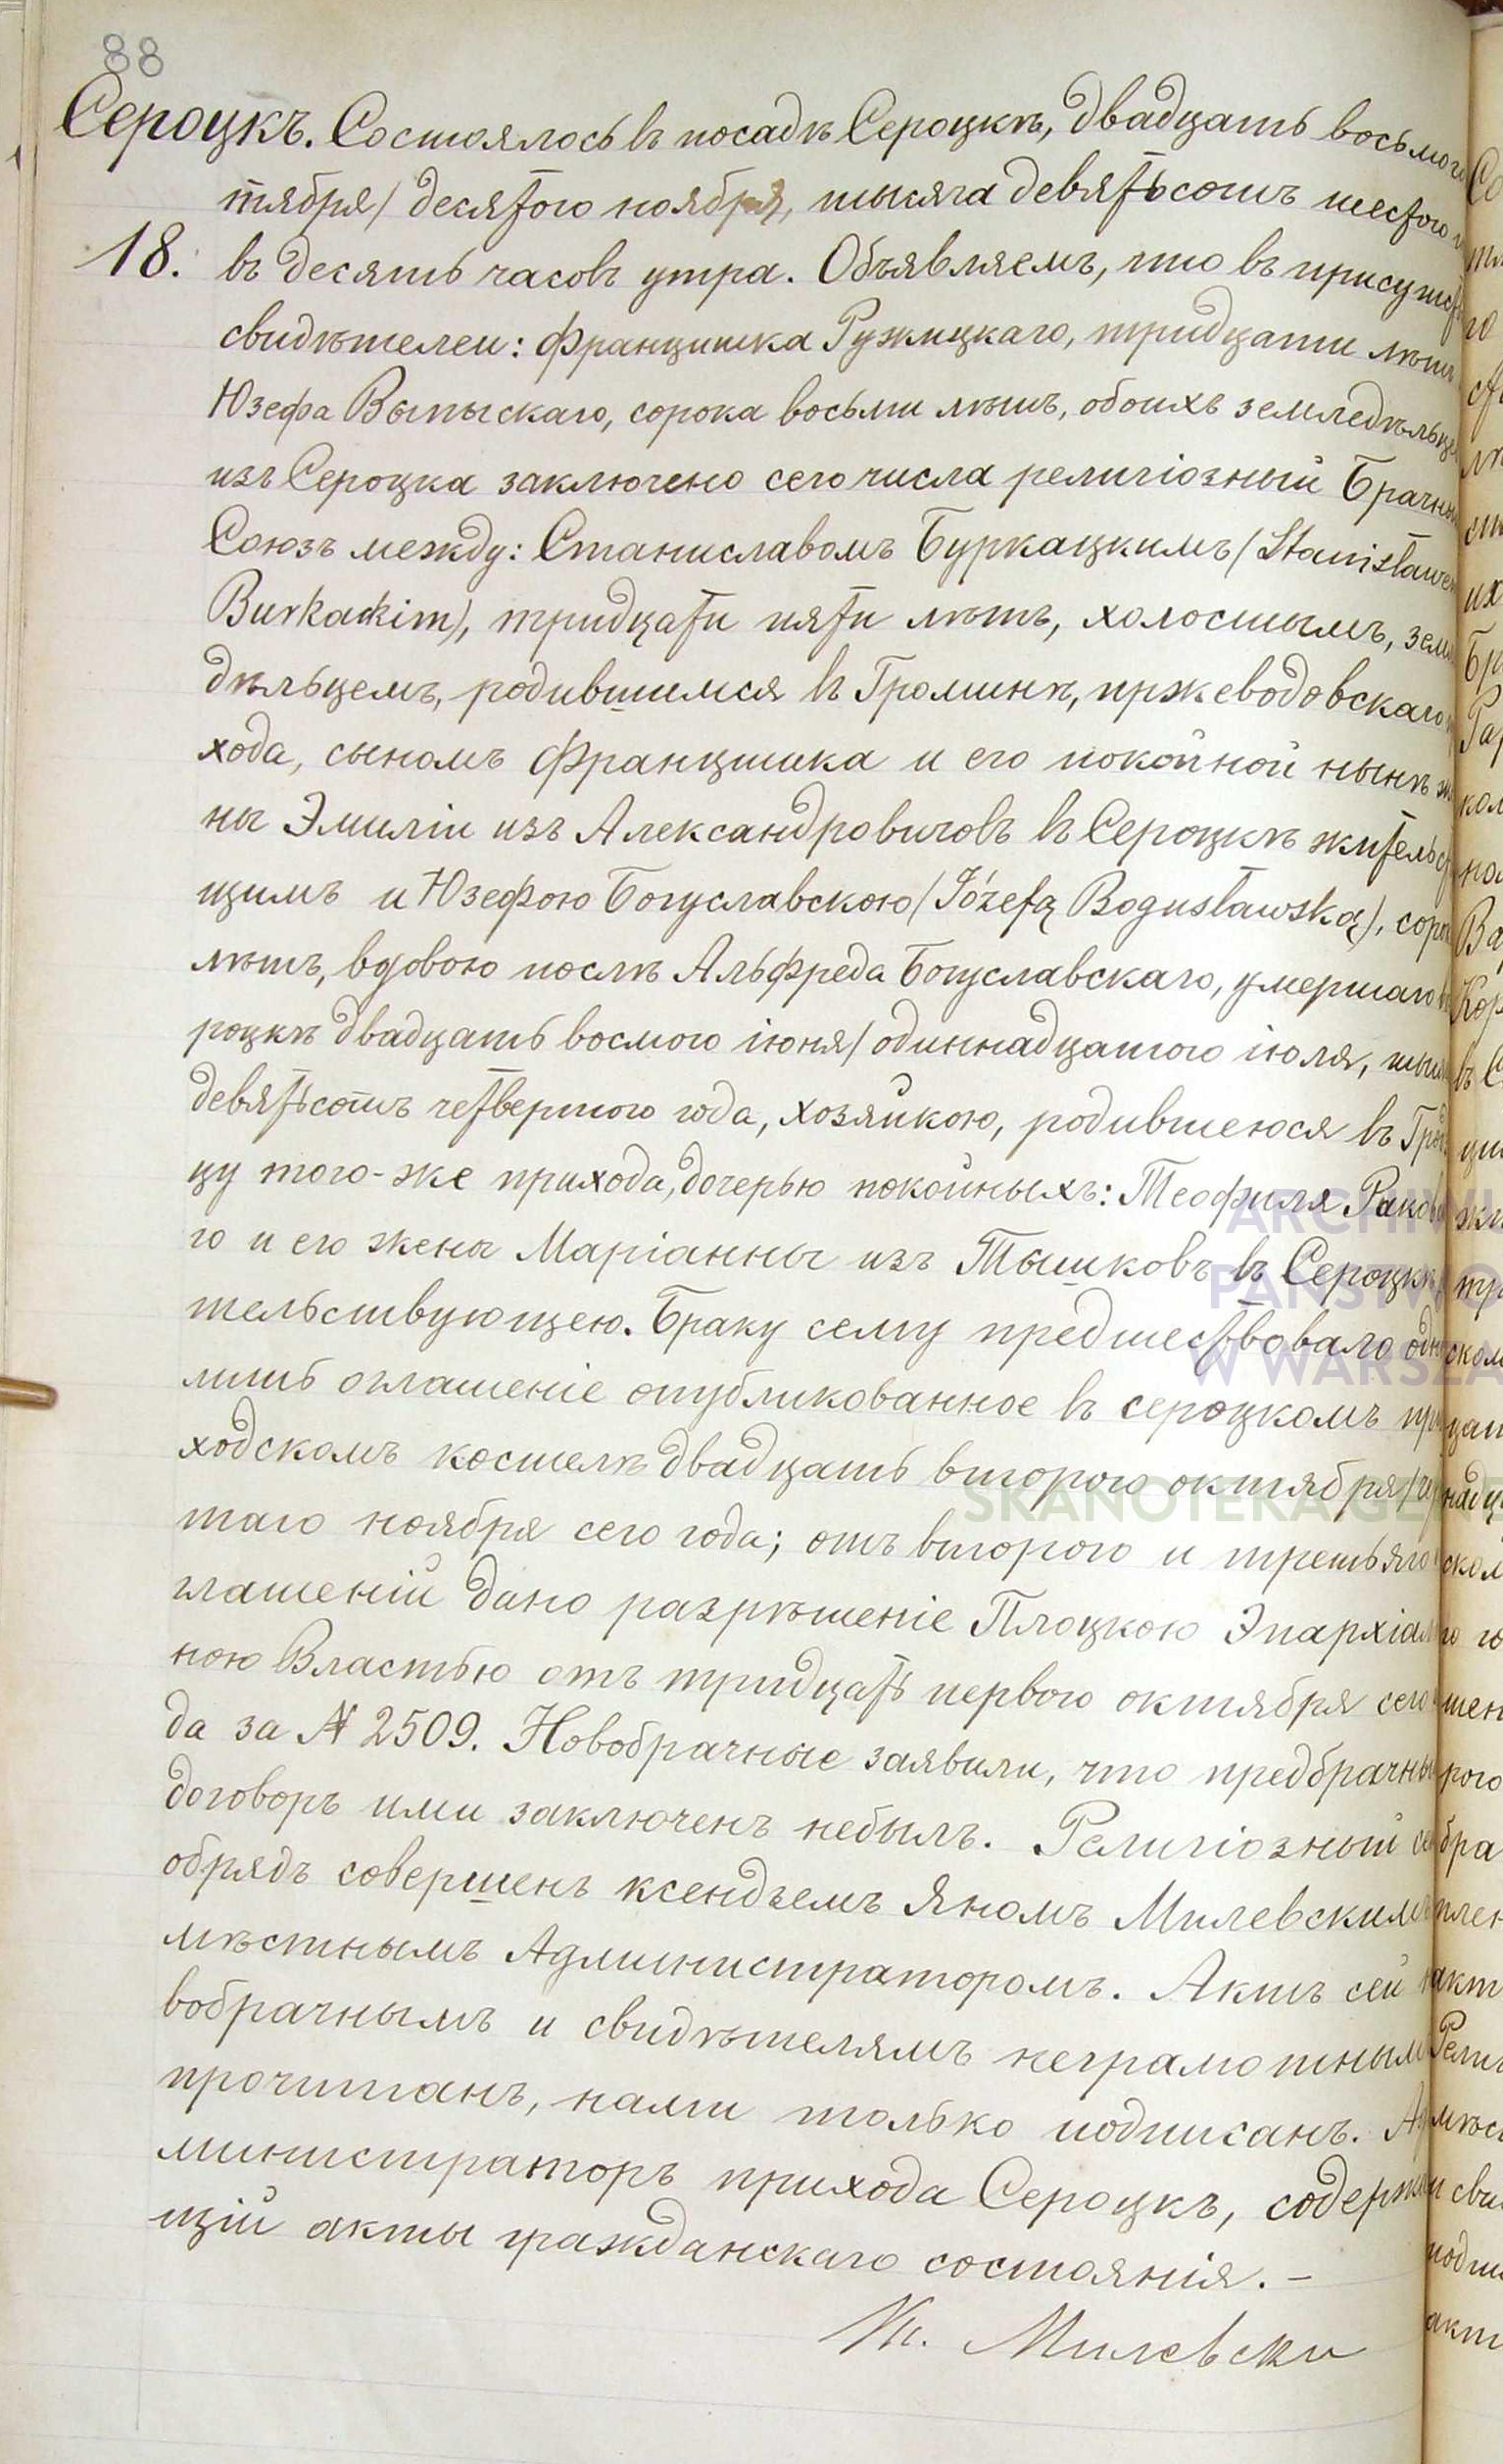 88
Сероцкъ. Состоялось въ посадѣ Сероцкѣ, двадцать восьмого
тября/ десятого ноября, тысяча девятьсотъ шестого
18. въ десять часовъ утра. Объявляемъ, что въ присутст
свидѣтелей: Францишка Ружицкаго, тридцати лѣтъ
Юзефа Выпыскаго, сорока восьми лѣтъ, обоихъ земледѣльце
изъ Сероцка заключено сего числа религіозный Брачны
Союзъ между: Станиславомъ Буркацкимъ (Stanisławem
Burkackim), тридцати пяти лѣтъ, холостымъ, земл
дѣльцемъ, родившимся въ Громинѣ, пржеводовскаго
хода, сыномъ Францишка и его покойной нынѣ ж
ны Эмиліи изъ Александровичовъ въ Сероцкѣ жительст
щимъ и Юзефою Богуславскою (Józefą Bogusławską), соро
лѣтъ, вдовою послѣ Альфреда Богуславскаго, умершаго в
роцкѣ двадцать восмого іюня/ одиннадцатого іюля, тыся
девятьсотъ четвертого года, хозяйкою, родившеюся въ
цу того-же прихода, дочерью покойныхъ: Теофиля Раков
го и его жены Маріанны изъ Тышковъ въ Сероцкѣ
тельствующею. Браку сему предшествовало одно
лишь оглашеніе опубликованное въ сероцкомъ при
ходскомъ костелѣ двадцать второго октября/ че
таго ноября сего года; отъ второго и третьяго
глашеній дано разрѣшеніе Плоцкою Эпархіаль
ною Властью отъ тридцать первого октября сего
да за № 2509. Новобрачные заявили, что предбрачны
договоръ ими заключенъ небылъ. Религіозный сей
обрядъ совершенъ ксендземъ Яномъ Милевскимъ
мѣстнымъ Администраторомъ. Актъ сей н
вобрачнымъ и свидѣтелямъ неграмотным
прочитанъ, нами только подписанъ. Ад
министраторъ прихода Сероцкъ, содержа
щій акты гражданскаго состоянія. –
Кс. Милевски
ARCHIWU
PAŃSTWO
W WARSZA
SKANOTEKA.GENE